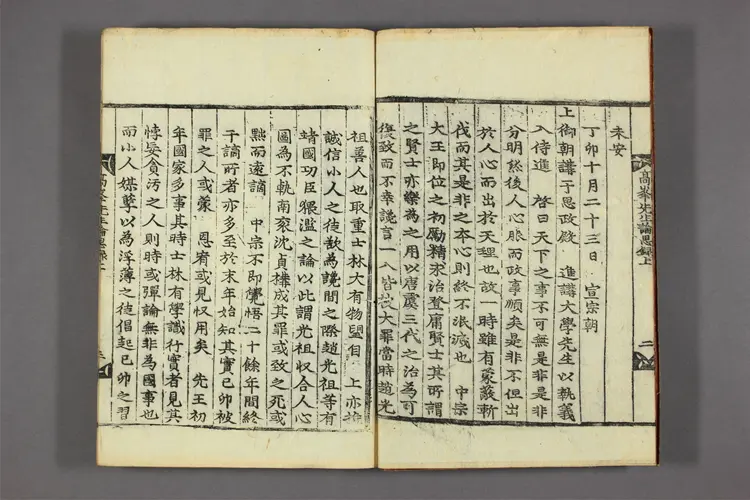 未安
丁卯十月二十三日 宣宗朝
上御朝講于思政殿 進講大學先生以執義
入侍進 啓曰天下之事不可無是非是非
分明然後人心服而政事順矣是非不但出
於人心而出於天理也故一時雖有蒙蔽斬
伐而其是非之本心則終不泯滅也 中宗
大王即位之初勵精求治登庸賢士其所謂
之賢士亦樂為之用以唐虞三代之治為可
復致而不幸讒言一入皆被大罪當時趙光
高峯先生論思錄上
二
祖善人也取重士林大有物望自 上亦推
誠信小人之徒歎為讒間之際趙光祖等有
靖國功臣猥濫之論以此謂光祖收合人心
圖為不軌南袞沈貞構成其罪或致之死或
黜而遠謫 中宗不即覺悟二十餘年間終
于謫所者亦多至於末年始知其實己卯被
罪之人或蒙 恩宥或見收用矣 先王初
年國家多事其時士林有學識行實者見其
悖妄貪污之人則時或彈論無非為國事也
而小人媒孽以為浮薄之徒倡起己卯之習
高峯先生論思錄上